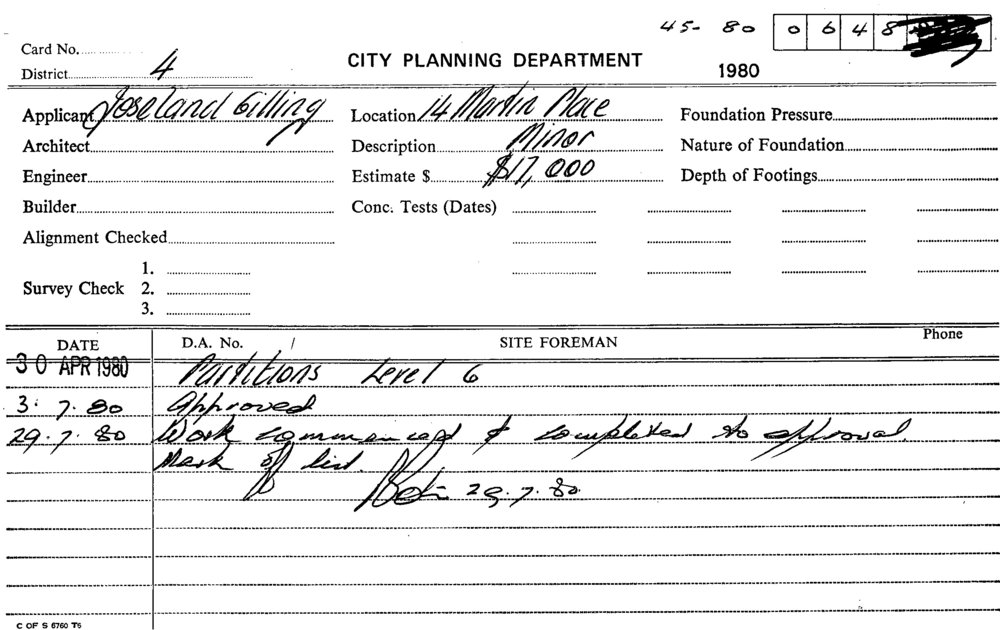 45- 80 0 6 4 8
Card No.
District 4
CITY PLANNING DEPARTMENT
1980
Applicant Joseland Gilling
Location 14 Martin Place
Foundation Pressure
Architect
Description Minor
Nature of Foundation
Engineer
Estimate $ $17,000
Depth of Footings
Builder
Conc. Tests (Dates)
Alignment Checked
Survey Check
1.
2.
3.
DATE D.A. No. / SITE FOREMAN Phone
30 APR 1980 Partitions Level 6
3. 7. 80 Approved
29. 7. 80 Work commenced & completed to approval.
Mark off list.
29. 7. 80.
C OF S 6760 T6